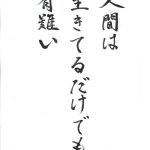 人間は
生きてるだけでも
有難い